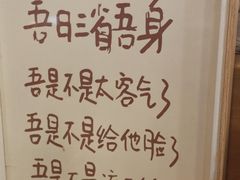 吾日三省吾身
吾是不是太客气了
吾是不是给他脸了
吾是不是